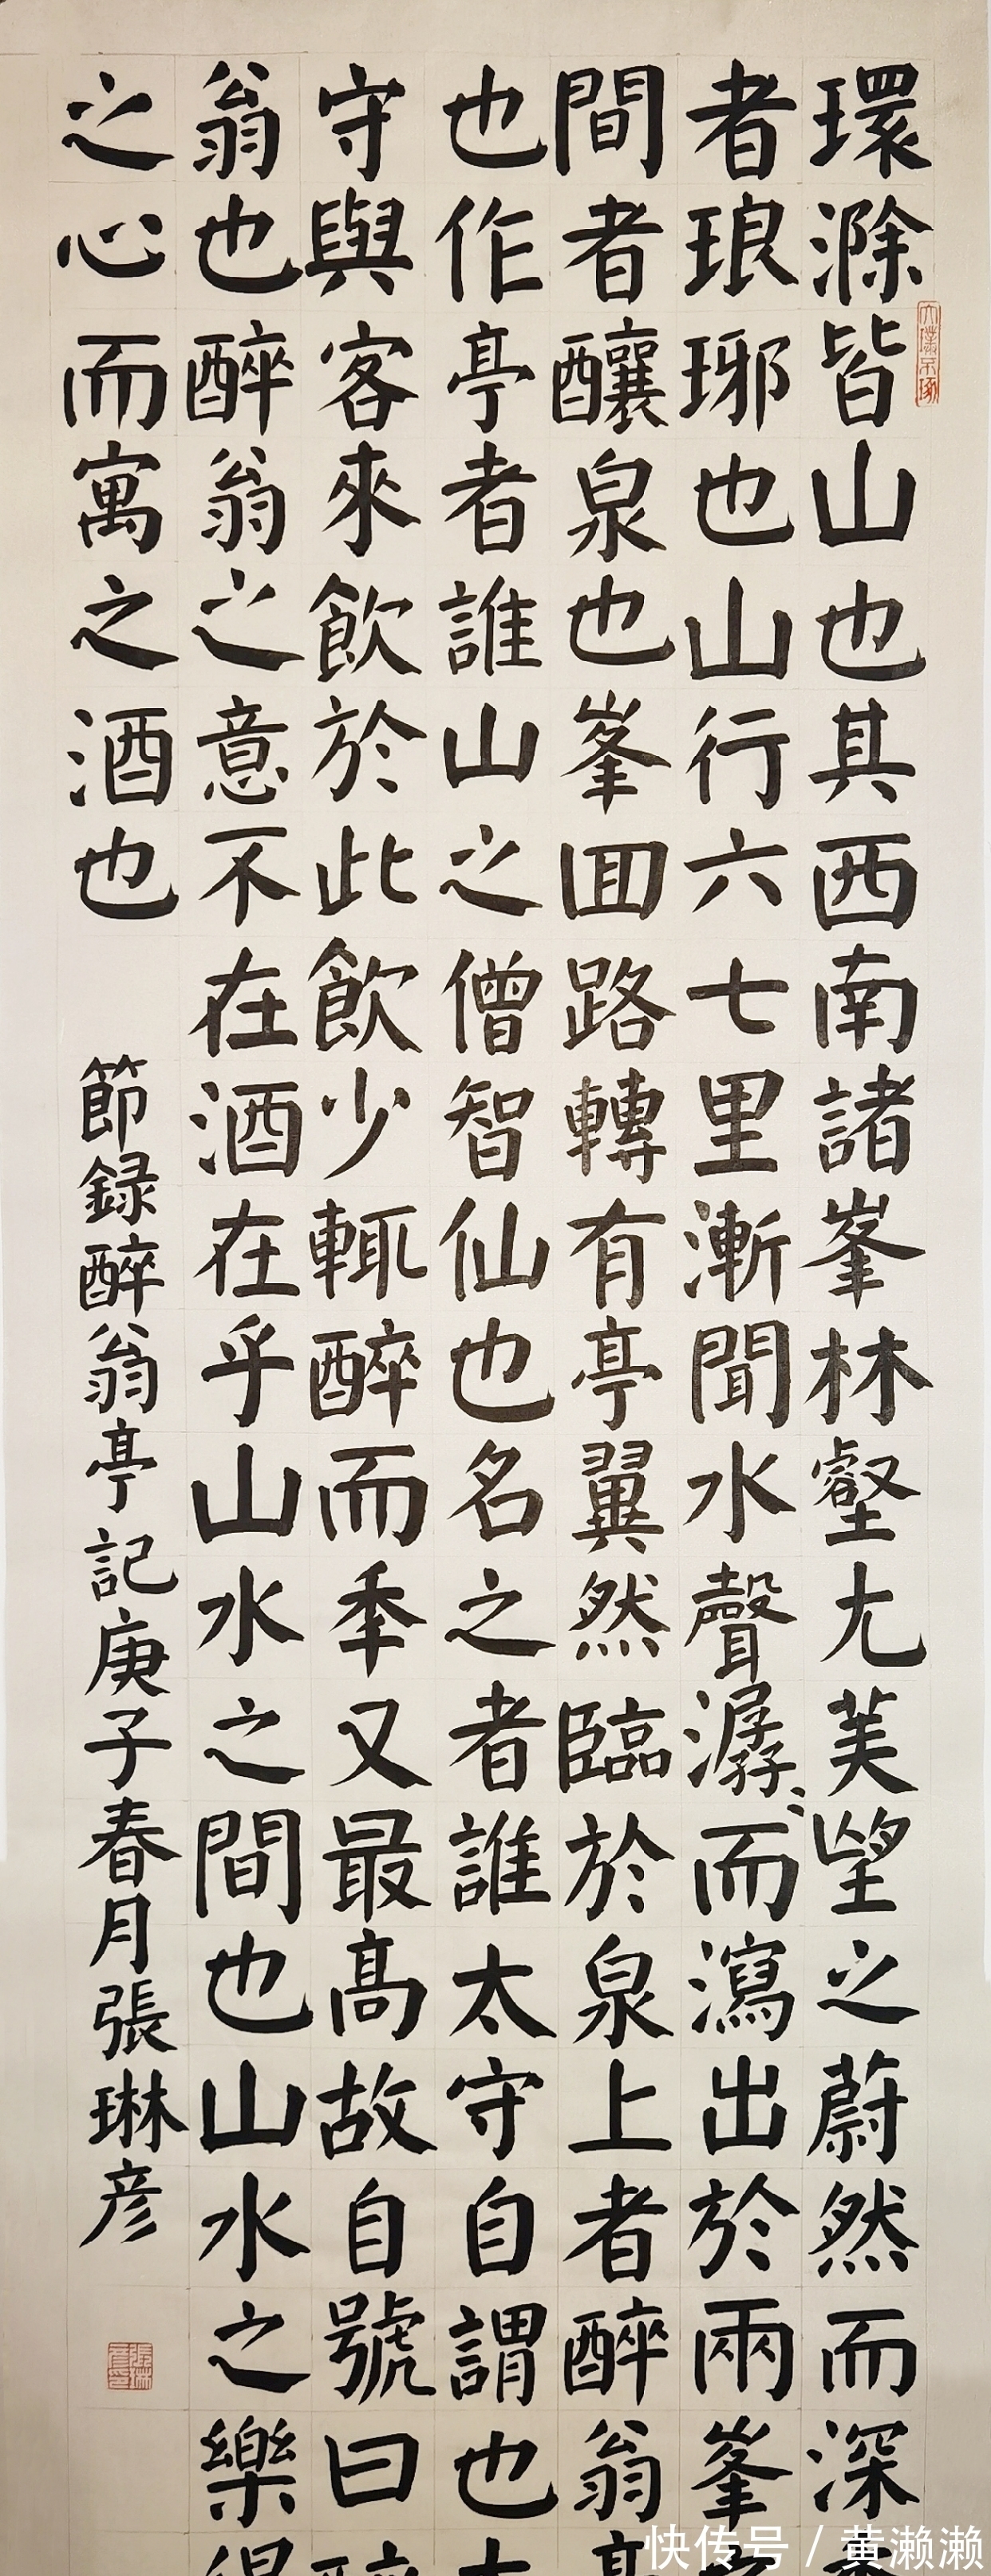 環滁皆山也其西南諸峯林壑尤美望之蔚然而深
者琅琊也山行六七里漸聞水聲潺潺而瀉出於兩峯
間者釀泉也峯回路轉有亭翼然臨於泉上者醉翁
也作亭者誰山之僧智仙也名之者誰太守自謂也
守與客來飲於此飲少輒醉而年又最高故自號曰
翁也醉翁之意不在酒在乎山水之間也山水之樂
之心而寓之酒也
節録醉翁亭記庚子春月張琳彦
大璞不琢
快传号 / 黄濑濑